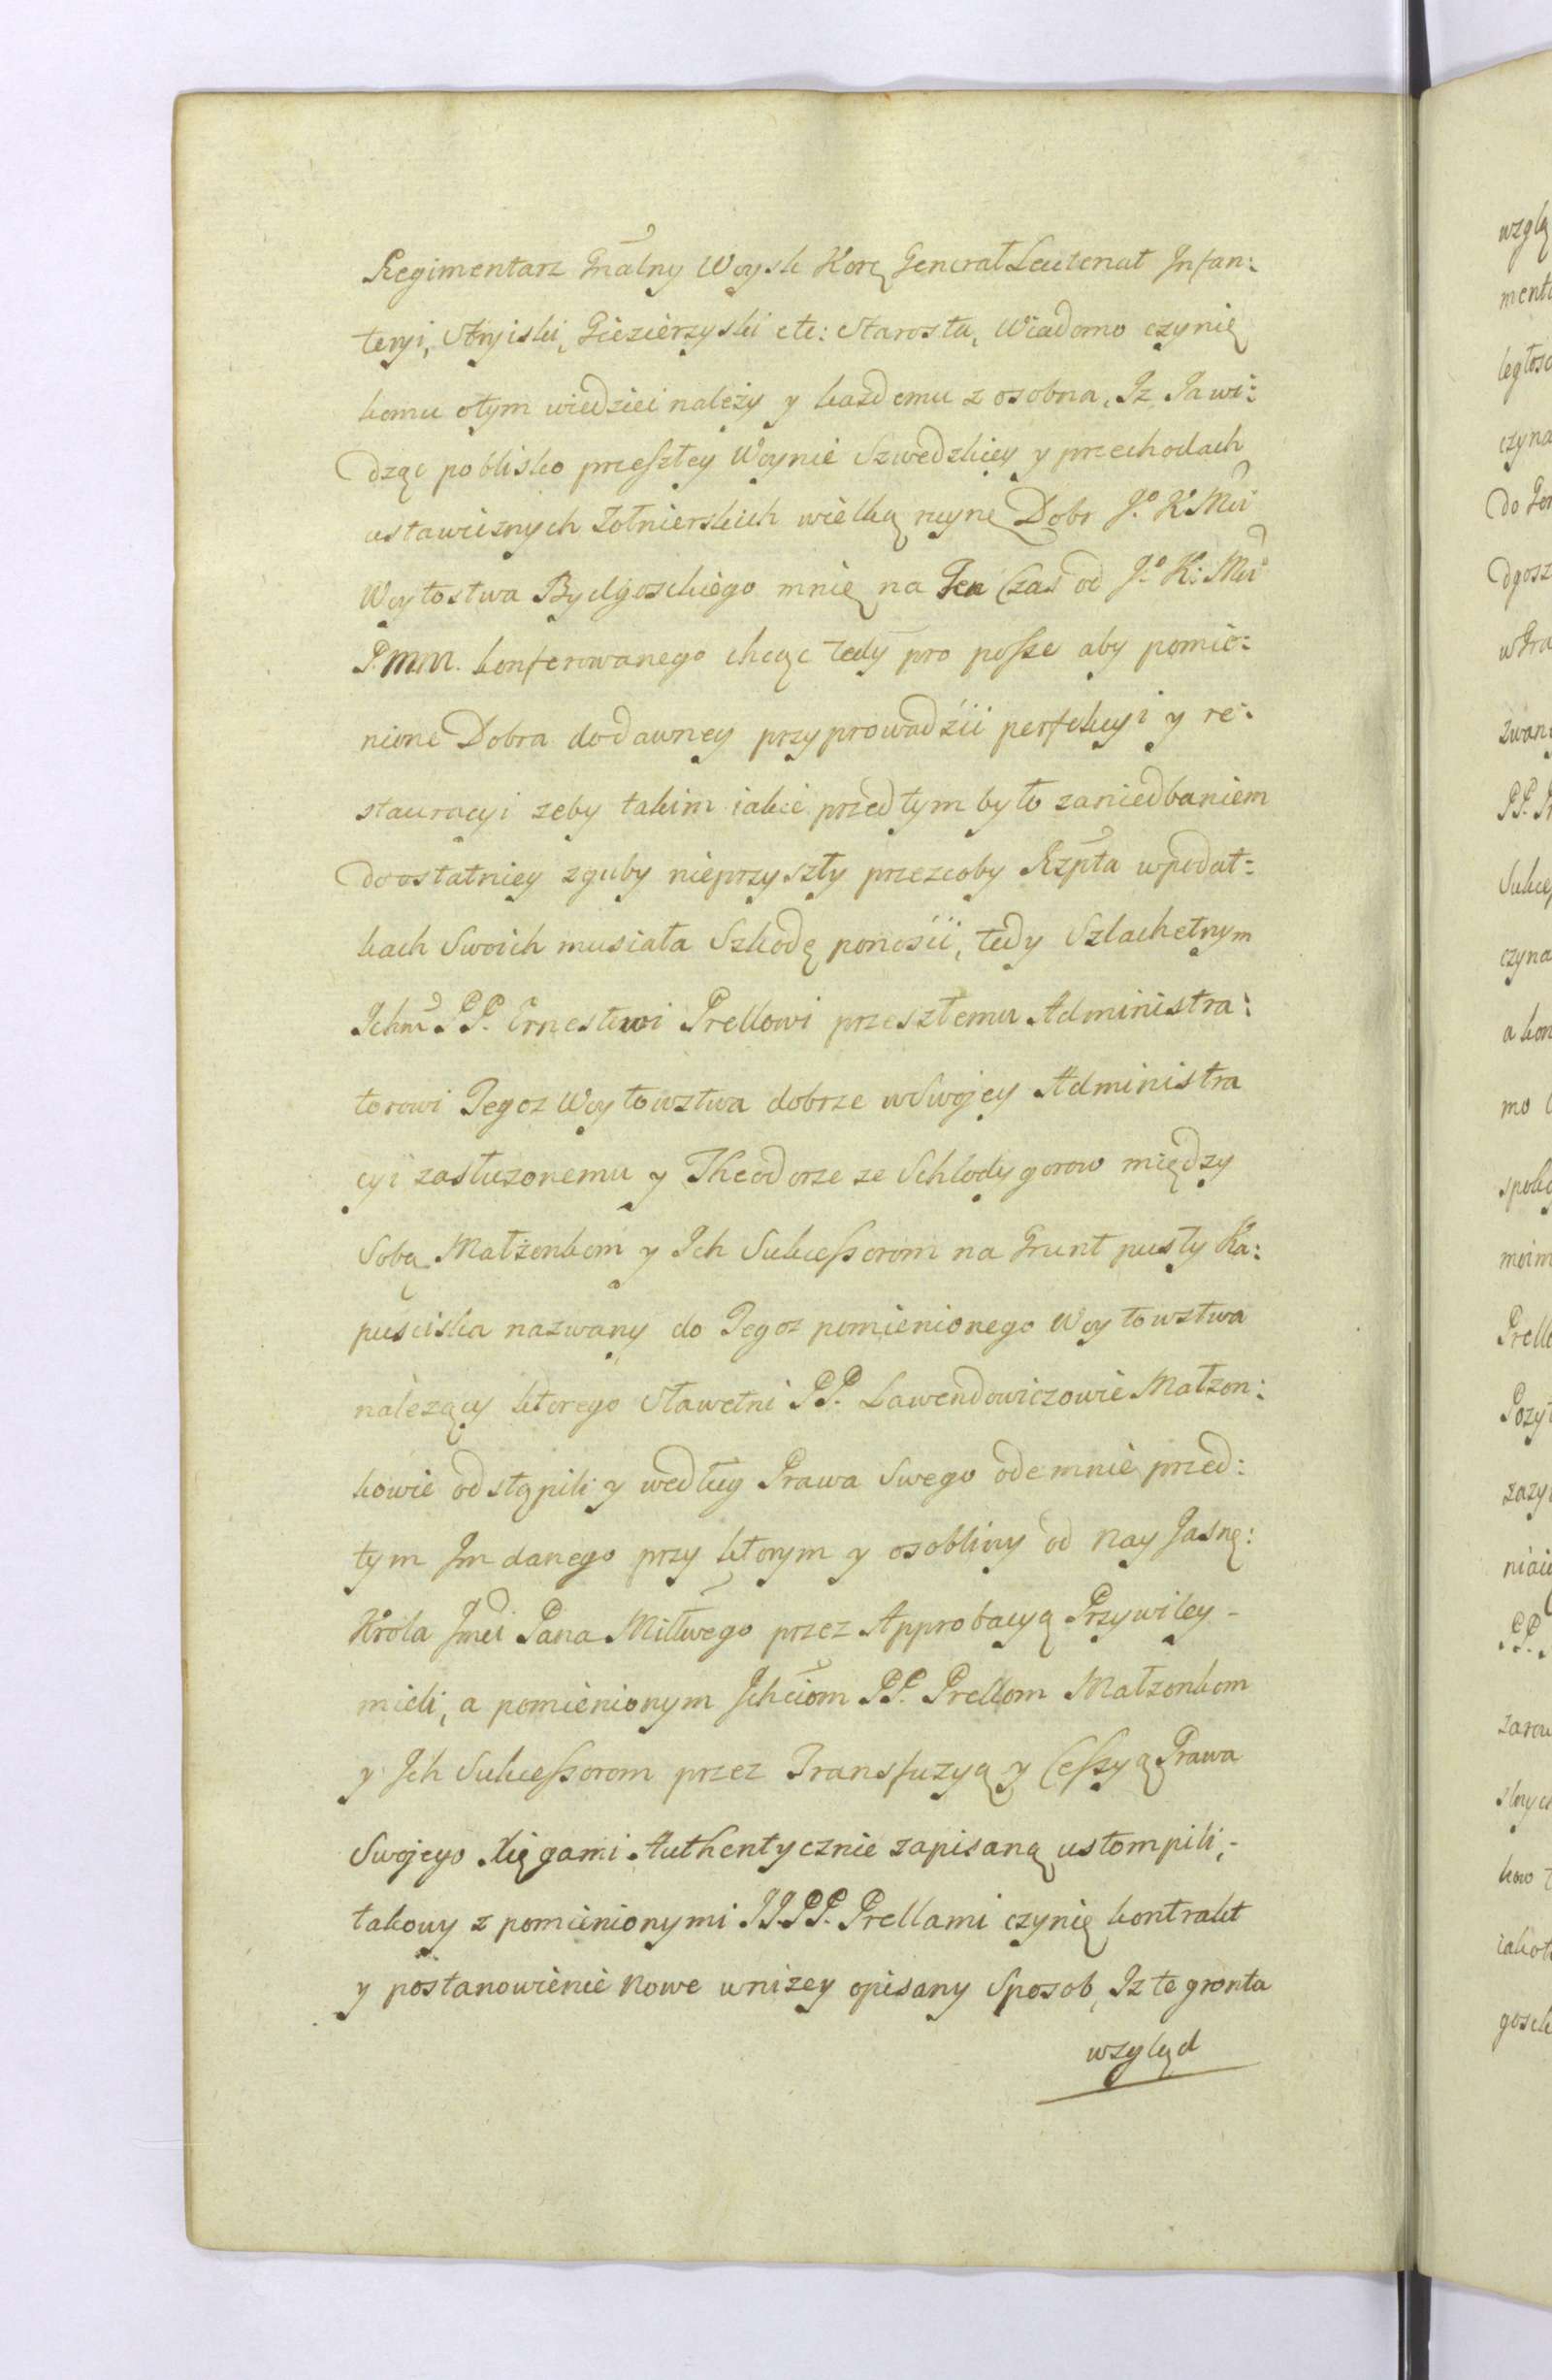 Regimentarz Gnalny Woysk Korę Generał Leutenat Infan:
teryi, Stryiski, Giezierzyski etc: Starosta, Wiadomo czynię
komu otym wiedzieć należy y każdemu z osobna, Iz Ja wi:
dząc poblisko przeszłey Woynie Szwedzkiey y przechodach
ustawicznych Zołnierskich wielką ruynę Dobr J.o K. Mci
Woytostwa Bydgoskiego mnię na Ten Czas od J.o K: Mci
P.MM. konferowanego chcąc tedy pro posse aby pomie:
nione Dobra do dawney przyprowadźić perfekcyi y re:
stauracyi zeby takim iakie przedtym było zaniedbaniem
do ostatniey zguby nieprzyszły przezcoby Rzpta w podat:
kach Swoich musiała Szkodę ponosić, tedy Szlachetnym
Ichm PP. Ernestowi Prellowi przeszłemu Administra:
torowi Tegoz Woytowstwa dobrze w Swojey Administra
cyi zasłuzonemu y Theodorze ze Schlodygorow między
Sobą Małżonkom y Ich Sukcessorom na Grunt pusty Ka:
puściska nazwany do Tegoz pomienionego Woytowstwa
nalezący ktorego Sławetni PP. Lawendowiczowie Małzon:
kowie odstąpili y według Prawa Swego odemnie przed:
tym Im danego przy ktorym y osobliwy od Nay Jasnę:
Króla Jmci Pana Miłłwego przez Approbacyą Przywiley -
mieli, a pomienionym Ichciom PP. Prellom Małzonkom
y Ich Sukcessorom przez Transfuzyą y Cessyą Prawa
Swojego Xięgami Authentycznie zapisaną ustompili, -
takowy z pomienionymi JJPP. Prellami czynię kontrakt
y postanowienie Nowe w nizey opisany Sposob, Iz te gronta
wzgląd